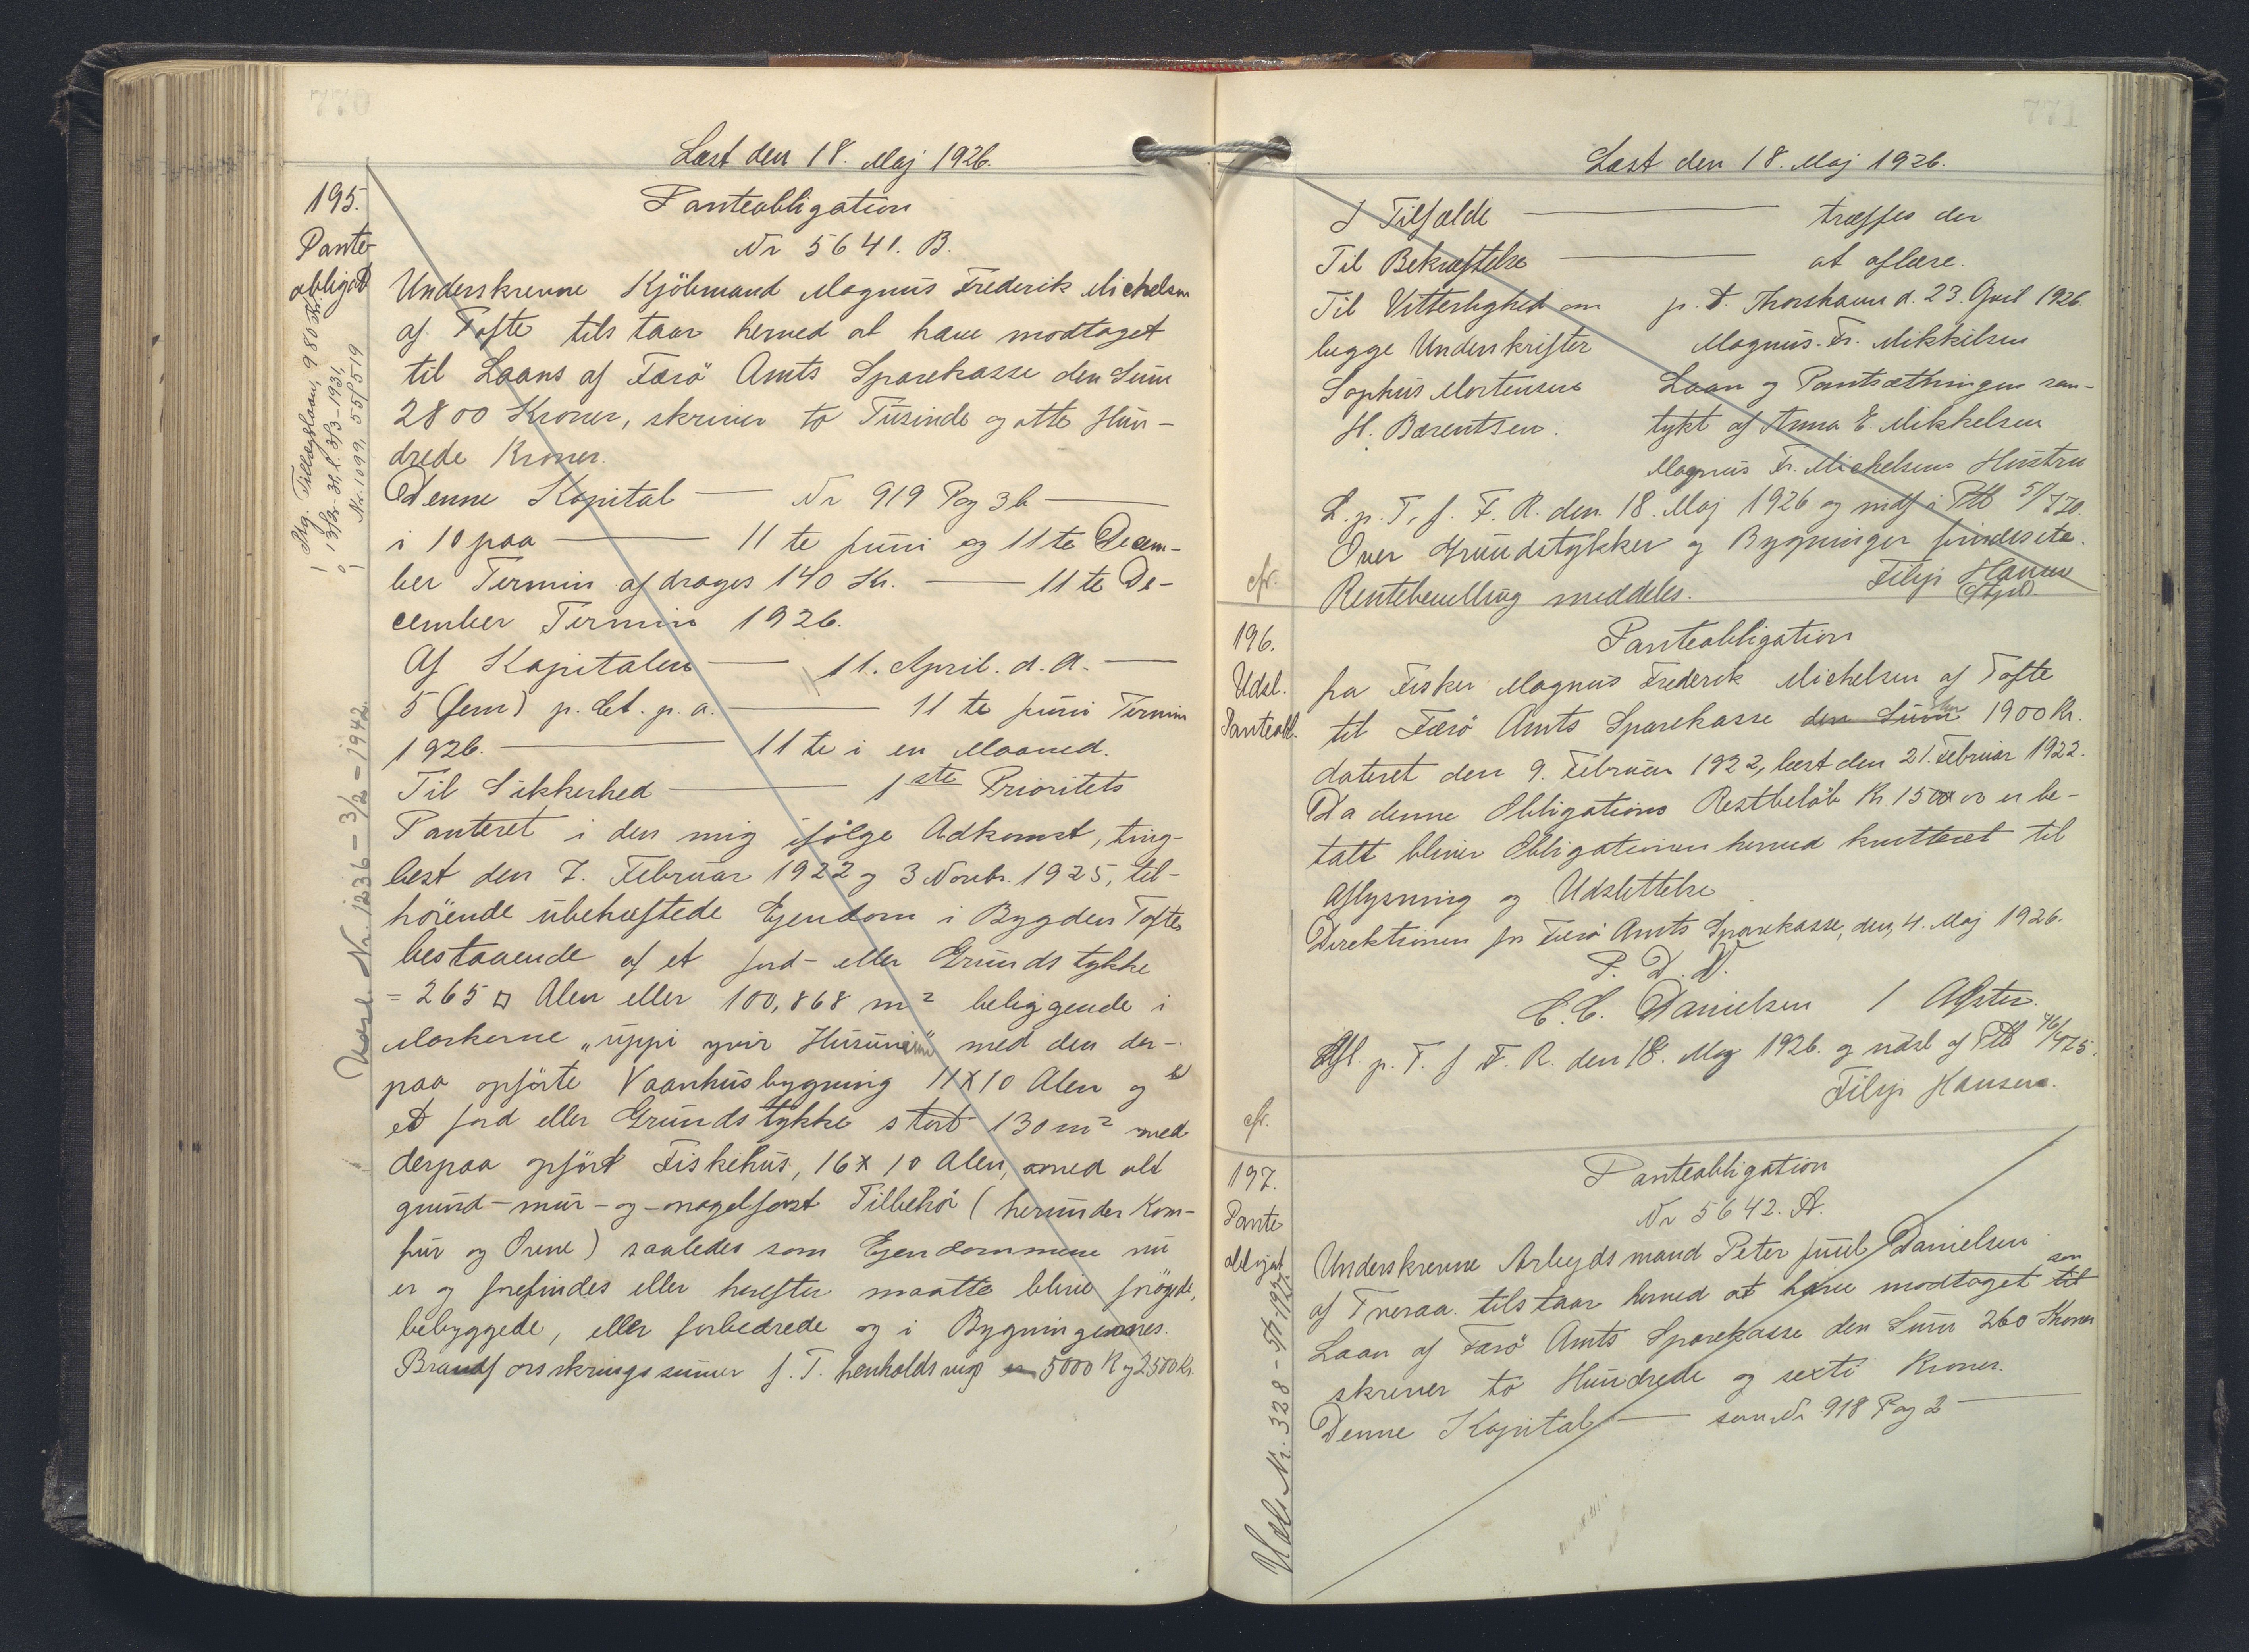 770
Læst den 18. Maj 1926.
195.
Pante-
obligat
Panteobligation
Nr 5641. B.
Underskrevne Kjöbmand Magnus Frederik Michelsen
af Tofte tilstaar herved at have modtaget
til Laans af Færö Amts Sparekasse den Sum
2800 Kroner, skriver to Tusinde og otte Hun-
drede Kroner.
Denne Kapital — Nr 919 Pag 3b —
i 10 paa — 11te Juni og 11te Decem-
ber Termin afdrages 140 Kr. — 11te De-
cember Termin 1926.
Af Kapitalen — 11. April. d. A. —
5 (fem) p. Ct. p. a. — 11te Juni Termin
1926. — 11te i en Maaned.
Til Sikkerhed — 1ste Prioritets
Panteret i den mig ifölge Adkomst, ting-
læst den 7. Februar 1922 og 3 Novbr. 1925, til-
hörende ubehæftede Ejendom i Bygden Tofte
bestaaende af et Jord- eller Grundstykke
= 265 □ Alen eller 100,868 m² beliggende i
Markerne „uppi yvir Húsunum" med den der-
paa opförte Vaanhusbygning 11 X 10 Alen og
et Jord eller Grundstykke stort 130 m² med
derpaa opfört Fiskehus, 16 x 10 Alen, med alt
grund-mur-og-nagelfast Tilbehör (herunder Kom-
fur og Ovne) saaledes som Ejendommene nu
er og forefindes eller herefter maatte blive forögede,
bebyggede, eller forbedrede og i Bygningernes
Brandforsikringssumer f. T. henholdsvis 5000 K og 2500 Kr.
Ptg. Tillægslaan, 980 Kr.
13/2-31, l. 3/3-1931,
Nr. 1099, 55/519
Udsl. Nr. 1236 - 3/2 - 1942.
771
Læst den 18. Maj 1926.
I Tilfælde — træffes der
Til Bekræftelse — at aflæse.
Til Vitterlighed om p. T. Thorshavn d. 23. April 1926.
begge Underskrifter Magnus Fr. Mikkelsen
Sophus Mortensen Laan og Pantsætningen sam-
H. Bærentsen. tykt af Anna E. Mikkelsen
Magnus Fr. Michelsens Hustru
L. p. T. f. F. R. den 18. Maj 1926 og indf i Ptb 51/770.
Over Grundstykker og Bygninger findes etc.
cfr.
Rentebevilling meddeles. Filip Hansen
196.
Udsl.
Panteobl.
Panteobligation
fra Fisker Magnus Frederik Michelsen af Tofte
til Færö Amts Sparekasse den Sum 1900 Kr.
dateret den 9. Februar 1922, læst den 21. Februar 1922.
Da denne Obligations Restbelöb Kr 1500 00 er be-
talt bliver Obligationen herved kvitteret til
Aflysning og Udslettelse
Direktionen for Færö Amts Sparekasse, den, 4. Maj 1926.
P. D. V.
C. C. Danielsen /
Afl. p. T. f F. R. den 18. Maj 1926. og udsl af Ptb 46/475.
Filip Hansen.
cfr.
197.
Pante
obligat.
Panteobligation
Nr 5642. A.
Underskrevne Arbejdsmand Peter Juul Danielsen
af Tveraa. tilstaar herved at have modtaget til som
Laan af Færö Amts Sparekasse den Sum 260 Kroner
skriver to Hundrede og sexti Kroner.
Denne Kapital — som Nr 918 Pag 2 —